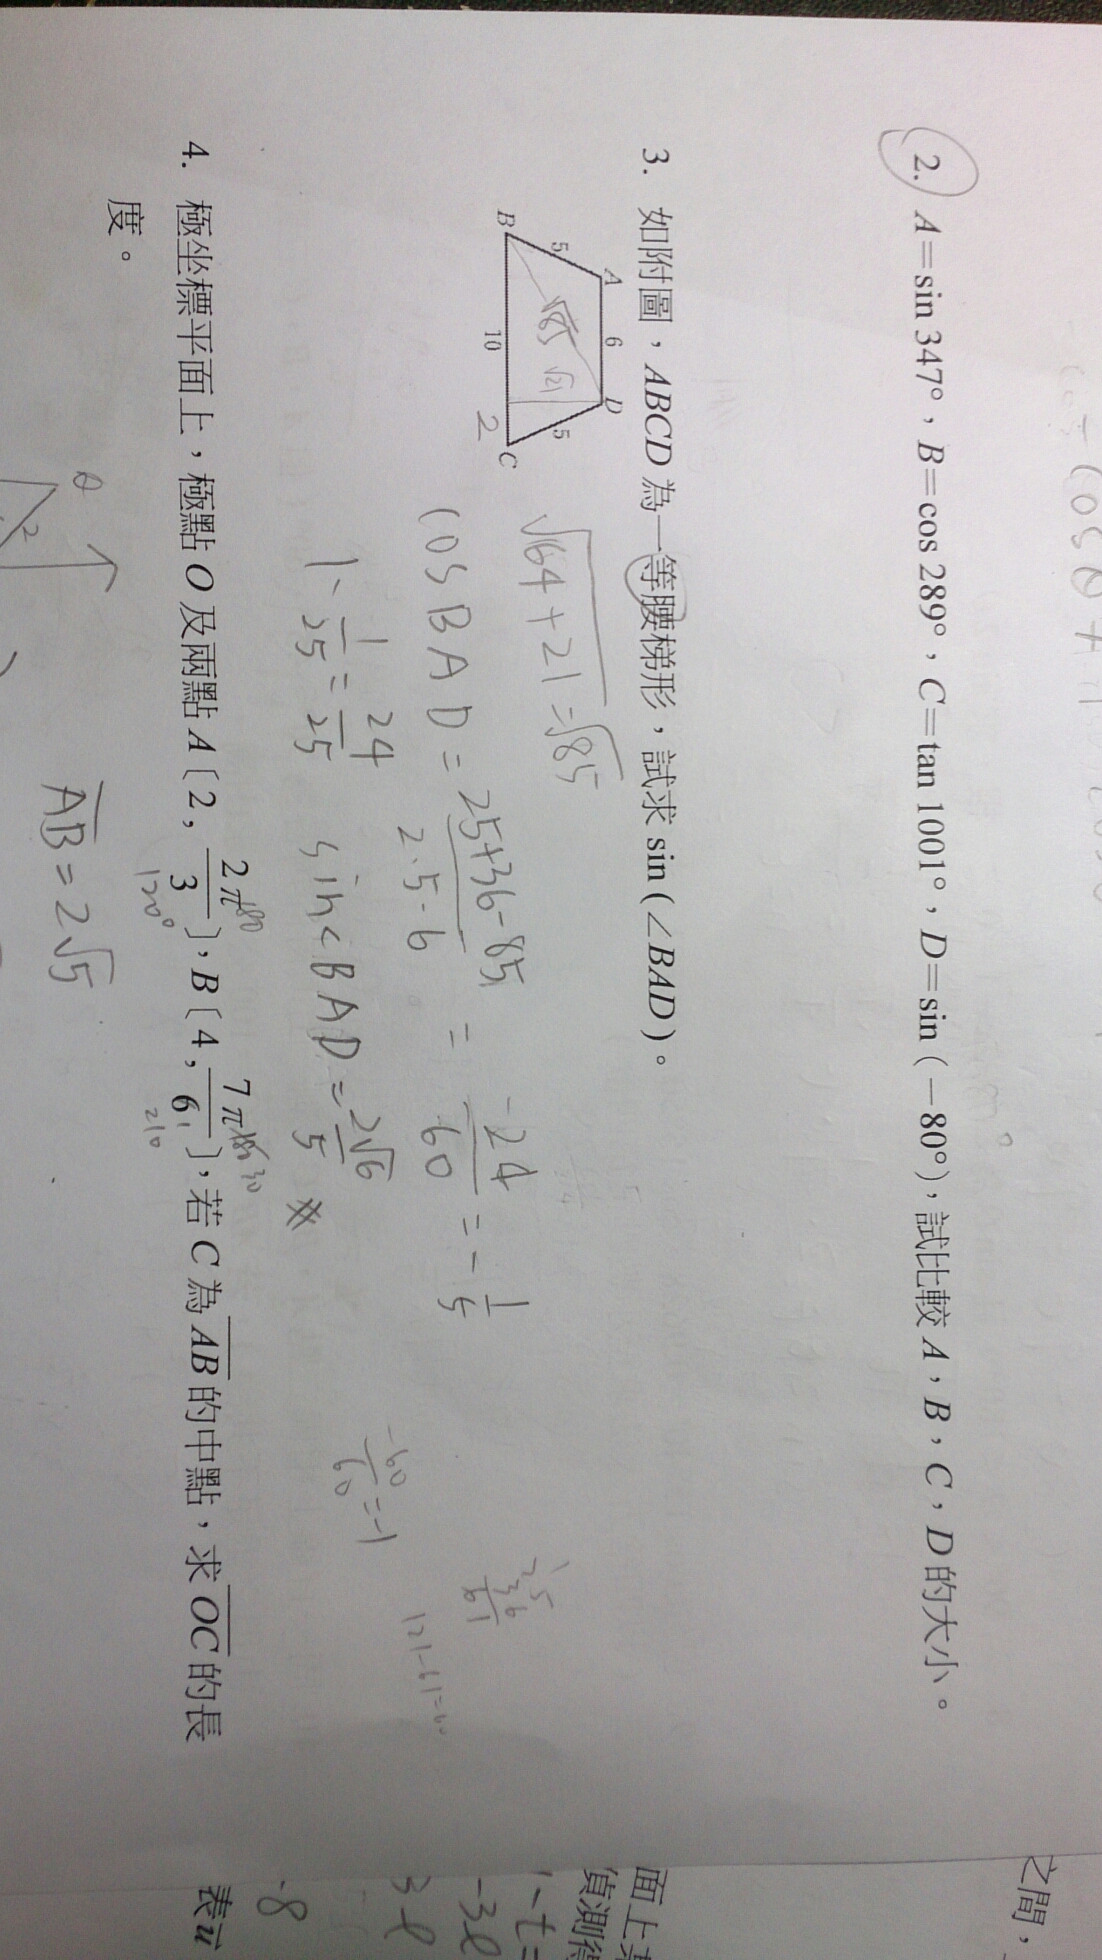 2. A=sin 347°，B=cos 289°，C=tan 1001°，D=sin（－80°），試比較 A，B，C，D 的大小。
3. 如附圖，ABCD 為一等腰梯形，試求 sin（∠BAD）。
A 6 D
5 √85 √21 5
B 10 2 C
√64+21=√85
cos BAD = 25+36-85 / 2·5·6 = -24/60 = -1/5
1-1/25=24/25 sin<BAD=2√6/5
-60/60=-1
25
36
61
121-61=60
4. 極坐標平面上，極點 O 及兩點 A〔2, 2π/3〕，B〔4, 7π/6〕，若 C 為 AB 的中點，求 OC 的長
120° 210
度。
θ
2
AB=2√5
之間，
面上某
偵測得
-3ℓ
3ℓ
-8
表